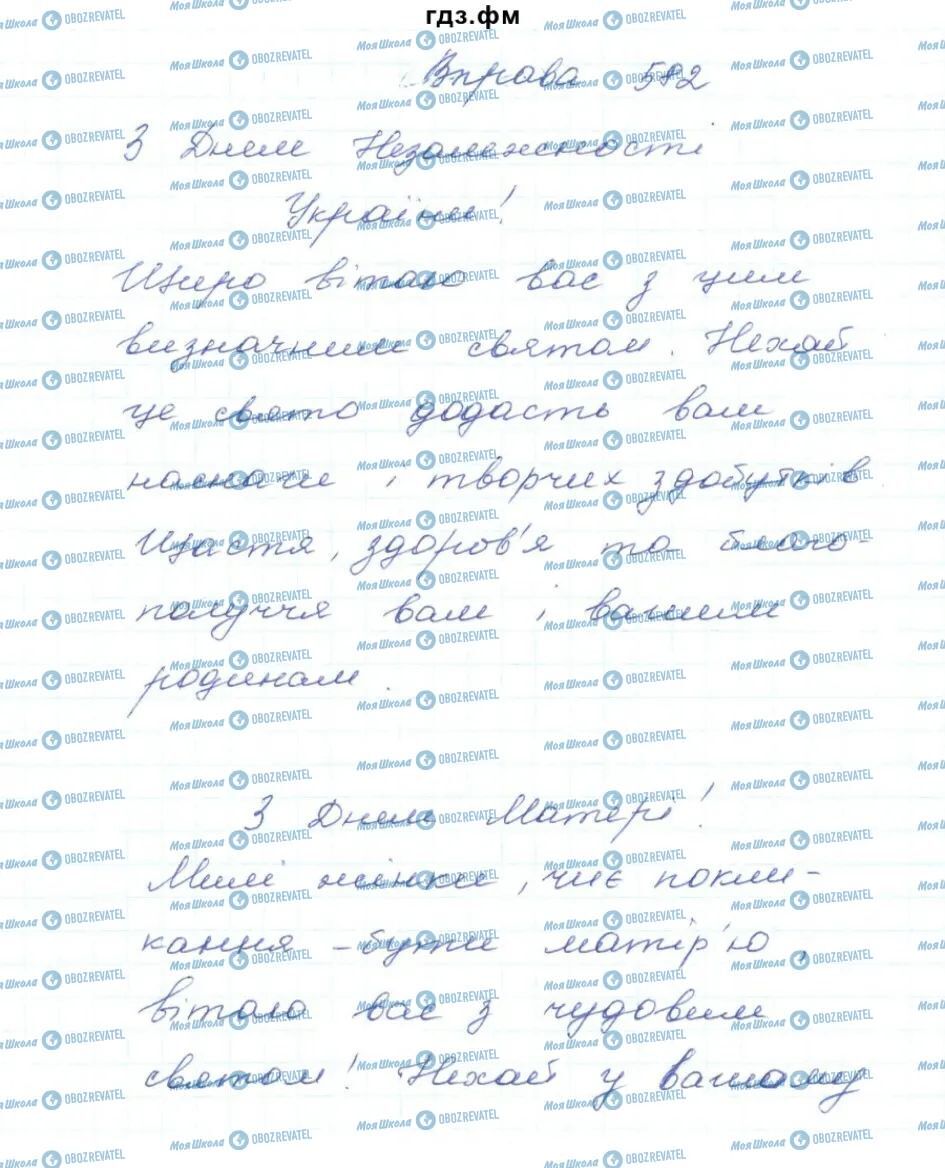 гдз.фм
Вправа 592
З Днем Незалежності
України!
Щиро вітаю вас з цим
визначним святом. Нехай
це свято додасть вам
наснаги і творчих здобутків
Щастя, здоров'я та благо-
получчя вам і вашим
родинам.
З Днем Матері!
Милі жінки, чиє покли-
кання – бути матір'ю,
вітаю вас з чудовим
святом! Нехай у вашому